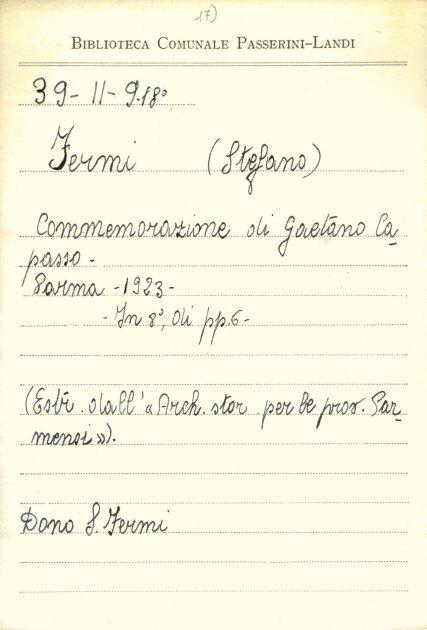 17)
BIBLIOTECA COMUNALE PASSERINI-LANDI
39-11-9.18°
Fermi (Stefano)
Commemorazione di Gaetano Ca-
passo-
Parma -1923-
-In 8°, di pp.6-
(Estr. dall'«Arch. stor per le prov. Par-
mensi»).
Dono S. Fermi